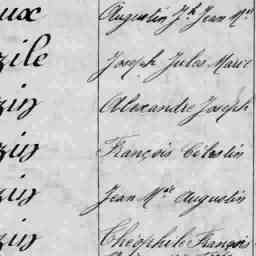 ux Augustin Jh Jean Mie
zile Joseph Jules Marie
zin Alexandre Joseph
zin François Célestin
zin Jean Mie Augustin
zin Théophile François